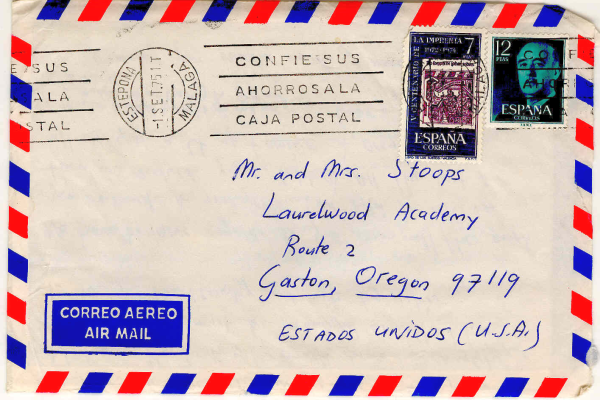 CONFIE SUS
AHORROS A LA
CAJA POSTAL
ESTEPONA
-1.SET.75.1T
MALAGA
E SUS
SALA
OSTAL
V CENTENARIO DE LA IMPRENTA
1972-1974
7
PTAS
ESPAÑA
CORREOS
12
PTAS
ESPAÑA
CORREOS
Mr. and Mrs. Stoops
Laurelwood Academy
Route 2
Gaston, Oregon 97119
ESTADOS UNIDOS (U.S.A.)
CORREO AEREO
AIR MAIL